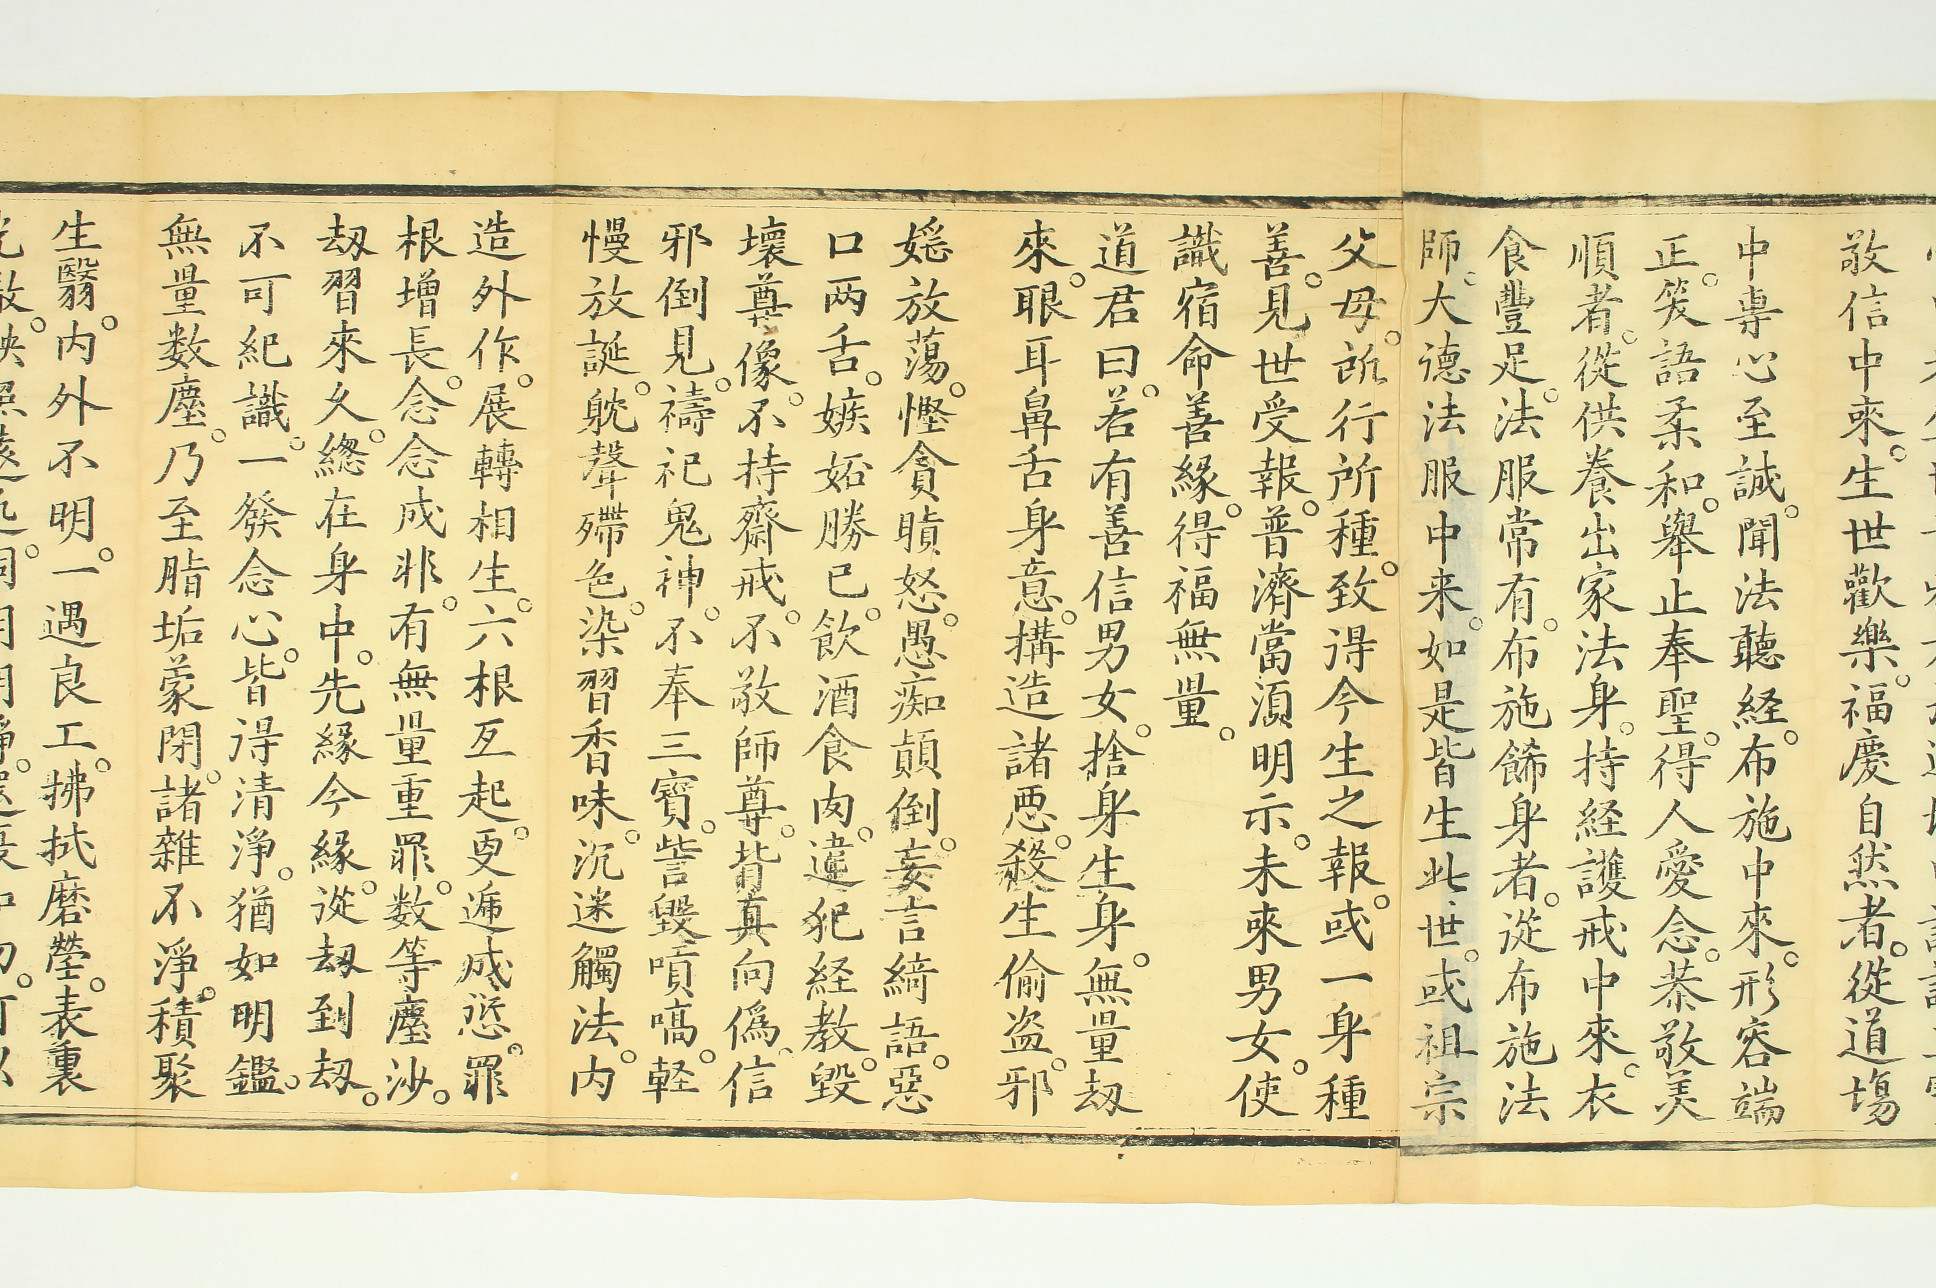 敬信中來。生世歡樂。福慶自然者。從道場
中專心至誠。聞法聽経。布施中來。形容端
正。笑語柔和。舉止奉聖。得人愛念。恭敬美
順者。從供養出家法身。持経護戒中來。衣
食豐足。法服常有。布施餙身者。從布施法
師。大德法服中来。如是皆生此世。或祖宗
父母。所行所種。致得今生之報。或一身種
善。見世受報。普濟當湏明示。未來男女。使
識宿命善緣。得福無量。
道君曰。若有善信男女。捨身生身。無量刼
來。眼耳鼻舌身意。搆造諸惡。殺生偷盗。邪
婬放蕩。慳貪瞋怒。愚痴顛倒。妄言綺語。惡
口两舌。嫉妬勝已。飲酒食肉。違犯経教。毀
壞尊像。不持齋戒。不敬師尊。背真向僞。信
邪倒見。禱祀鬼神。不奉三寶。訾毀嘖嗃。軽
慢放誕。躭聲殢色。染習香味。沉迷觸法。内
造外作。展轉相生。六根互起。更遞成愆。罪
根增長。念念成非。有無量重罪。数等塵沙。
刼習來久。緫在身中。先緣今緣。從刼到刼。
不可紀識。一發念心。皆得清淨。猶如明鑑。
無量数塵。乃至脂垢蒙閉。諸雜不淨。積聚
生翳。内外不明。一遇良工。拂拭磨瑩。表裏